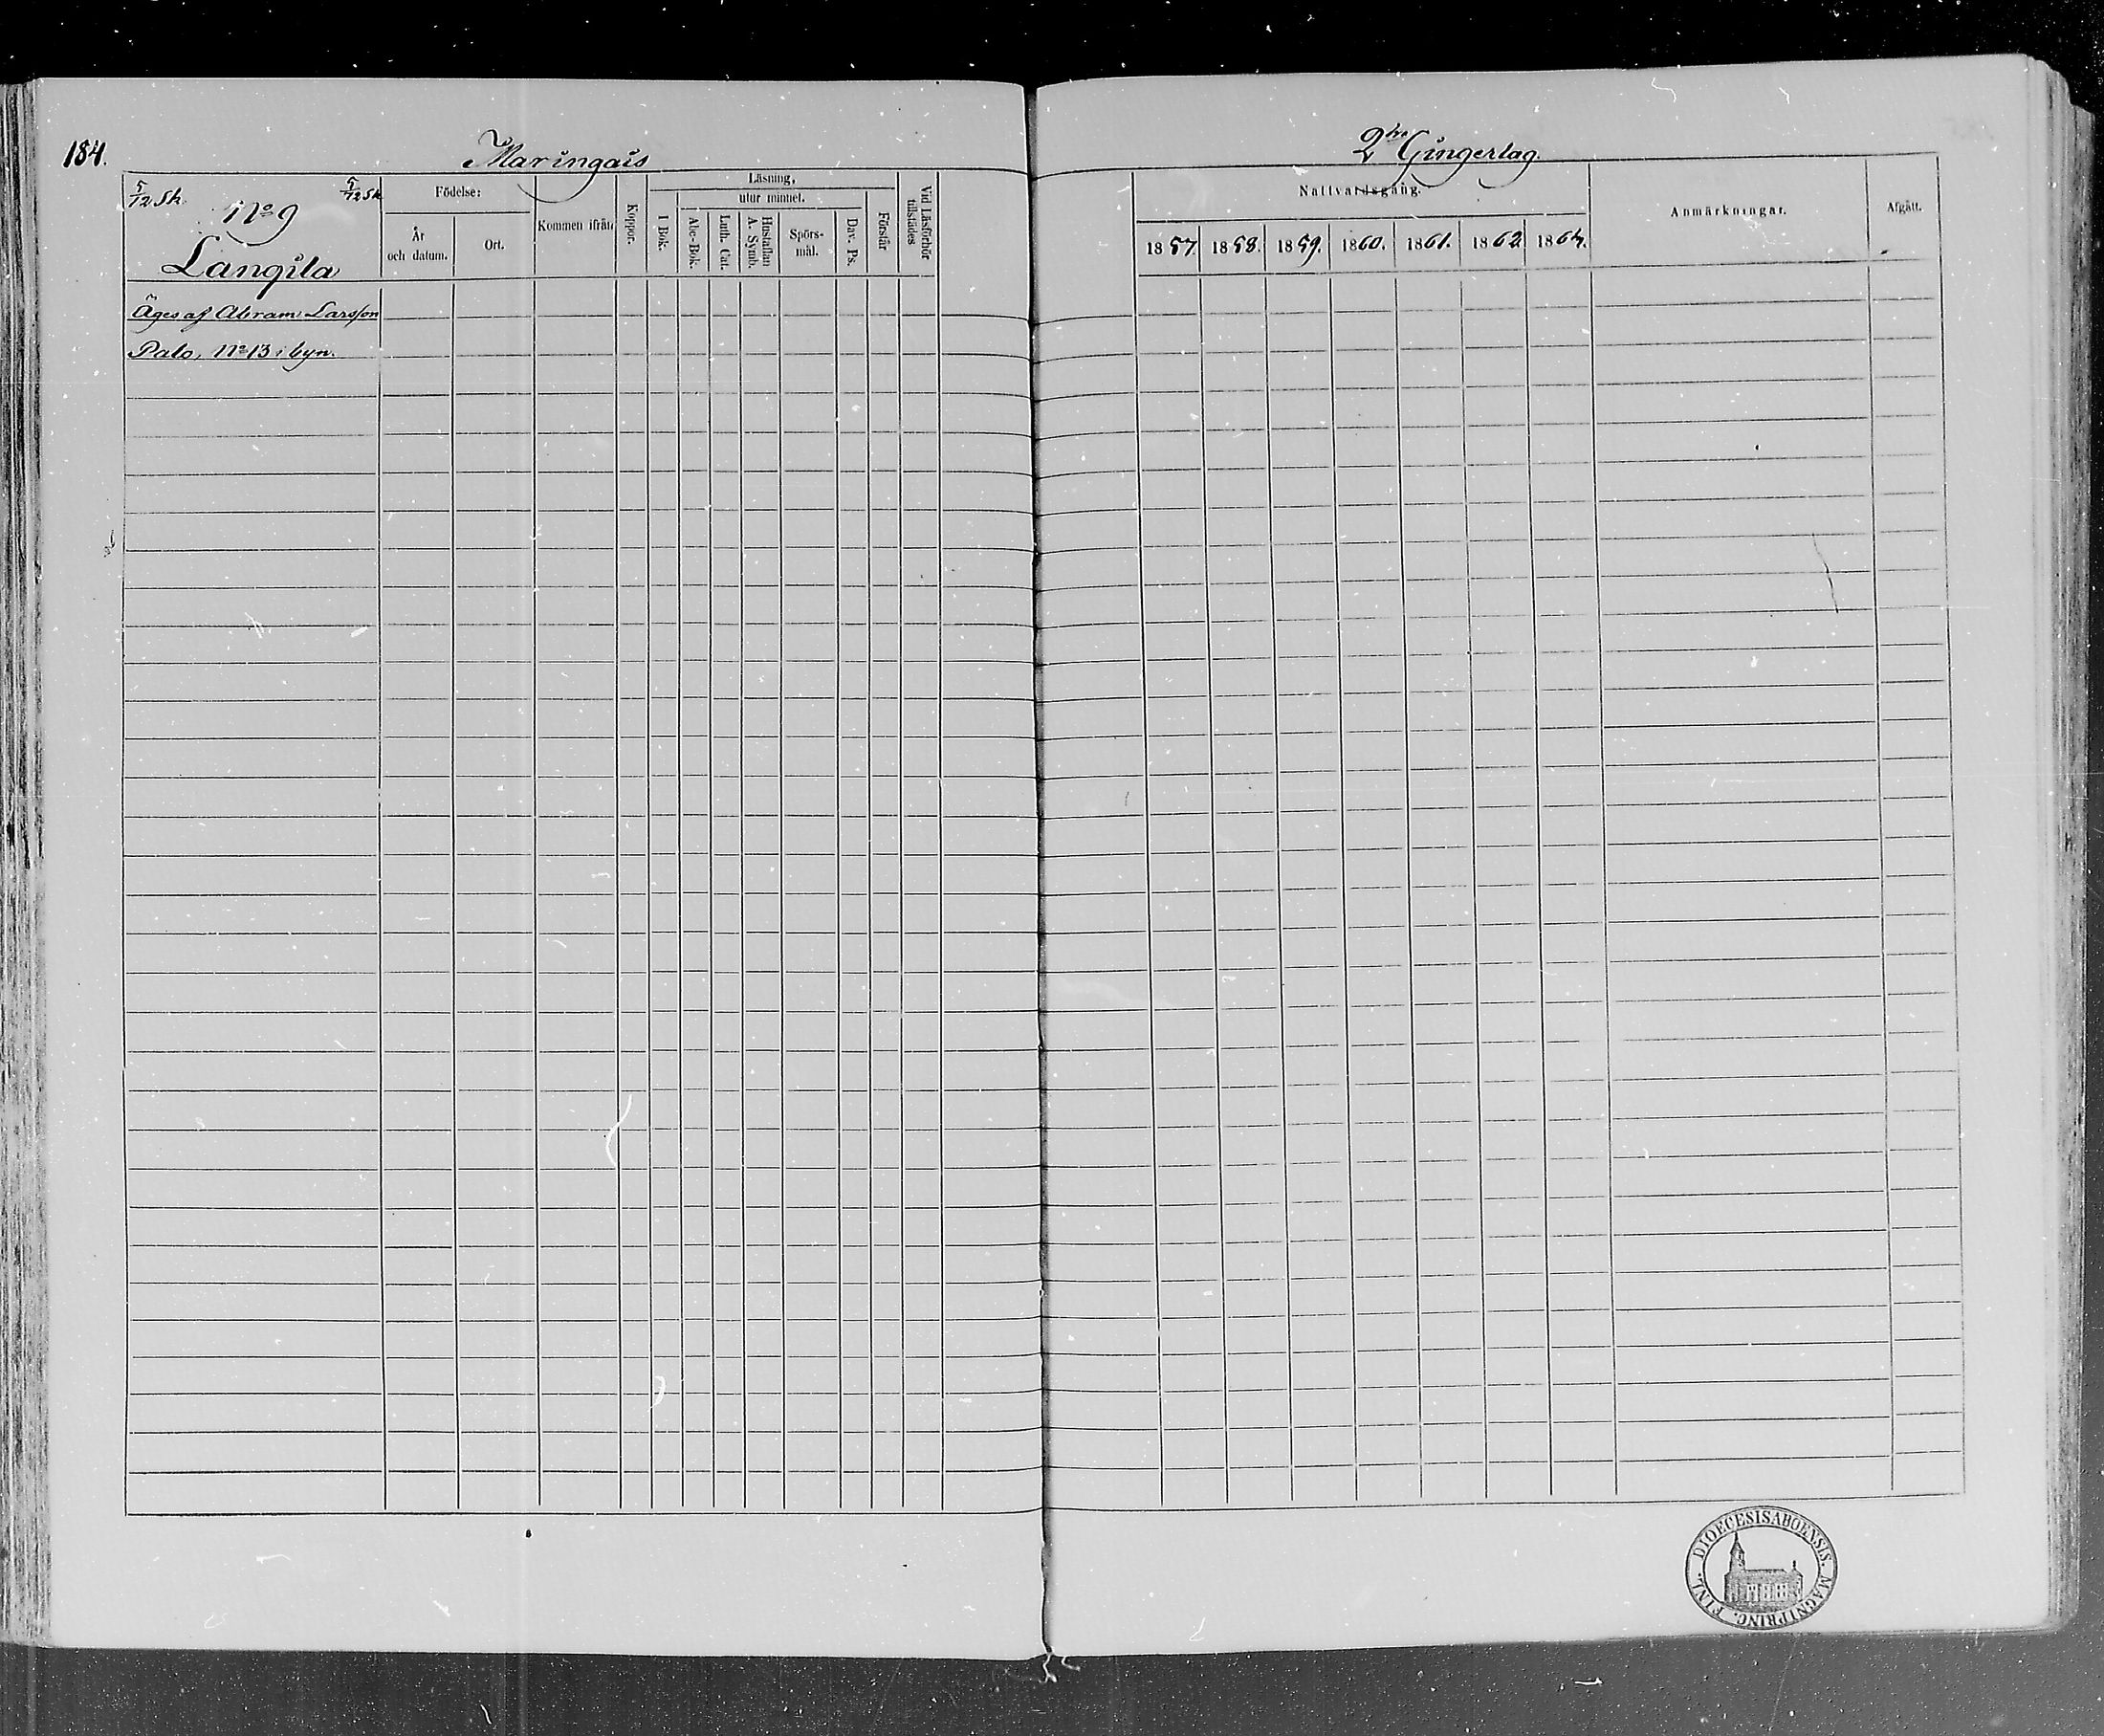 184.
Maringais
5/12 Sk. 5/12 Sk
No 9
Langila
Födelse:
År och datum.
Ort.
Kommen ifrån
Koppor.
Läsning,
utur minnet.
I Bok.
Abc-Bok.
Luth. Cat.
Hustaflan A. Symb.
Spörs-mål.
Dav. Ps.
Förstår
Vid Läsförhör tillstädes
Äges af Abram Larsson
Palo, No 13 i byn.
2dra Gingerlag.
Nattvardsgång.
1857. 1858. 1859. 1860. 1861. 1862. 1864.
Anmärkningar.
Afgått.
DIOECESIS ABOENSIS. MAGNI PRINC. FINL.